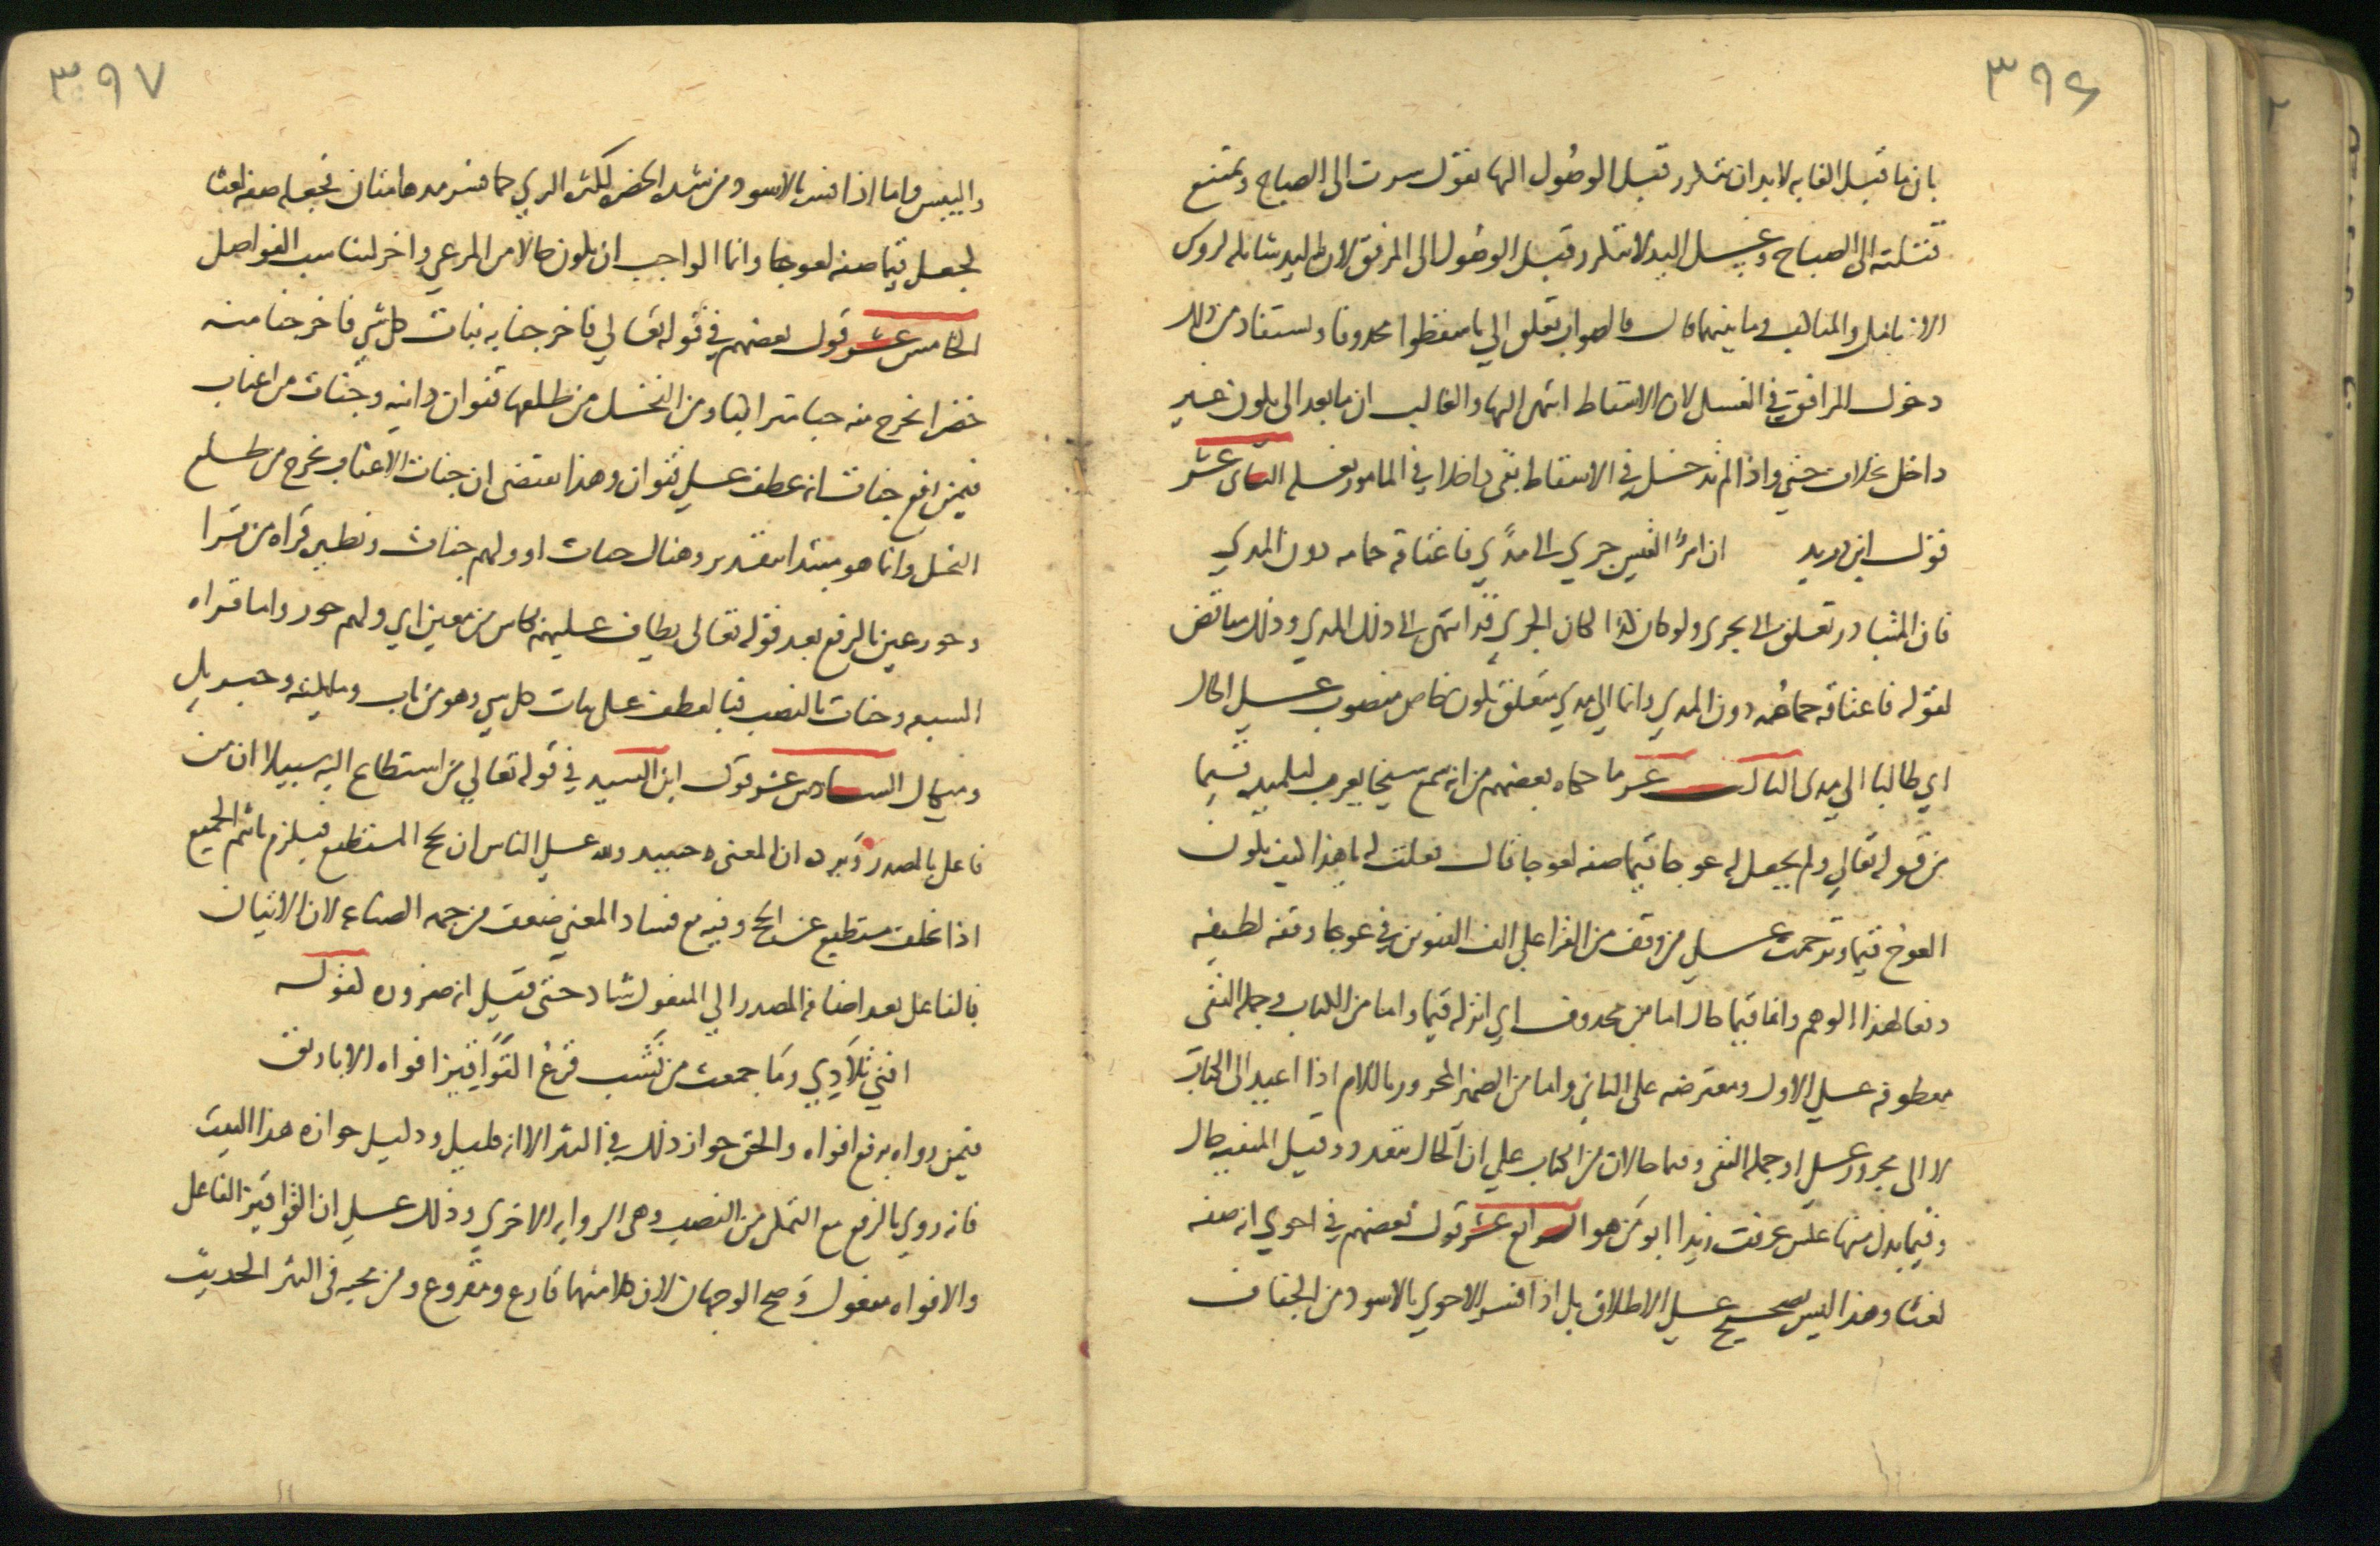 ٣٩٦
بان ما قبل الغايه لابد ان يتكرر قبل الوصول اليها تقول سرت الى الصباح ويمتنع
قتلته الى الصباح وغسل اليد لا يتكرر قبل الوصول الى المرفق لان اليد شامله لروس
الانامل والمناكب وما بينهما قال والصواب تعلق الي باسقطوا محذوفا ويستفاد من ذلك
دخول المرافق في الغسل لان الاسقاط انتهى اليها والغالب ان ما بعد الى يكون غير
داخل بخلاف حتي واذا لم يدخل في الاسقاط بقى داخلا في المامور بغسله الثاني عشر
قول ابن دريد ان امرأ القيس جري الى مدًي فاعتاقه حمامه دون المدي
فان المتبادر تعلق الى بجري ولو كان كذا لكان الجري قد انتهى الى ذلك المدي وذلك مناقض
لقوله فاعتاقه حمامُه دون المدي وانما الي مدي متعلق بكون خاص منصوب على الحال
اي طالبا الي مدي الثالث عشر ما حكاه بعضهم من انه سمع شيخا يعرب لتلميذه قيما
من قوله تعالي ولم يجعل له عوجا قيما صفه لعوجا قال فقلت له يا هذا كيف يكون
العوج قيما وترحمت على من وقف من القرا على الف التنوين في عوجا وقفه لطيفه
دفعا لهذا الوهم وانما قيما حال اما من محذوف اي انزله قيما واما من الكتاب وجمله النفي
معطوفه على الاول ومعترضه على الثاني واما من الضمير المجرور باللام اذا اعيد الى الكتاب
لا الى مجرور على او جمله النفي وقيما حالان من الكتاب علي ان الحال يتعدد وقيل المنفيه حال
وقيما بدل منها عكس عرفت زيدا ابو من هو الرابع عشر قول بعضهم في احوي انه صفه
لغثا وهذا ليس بصحيح على الاطلاق بل اذا فسر الاحوي بالاسود من الجفاف
٣٩٧
واليبس واما اذا فسر بالاسود من شده الخضره لكثره الري كما فسر مدهامتان فجعله صفه لغثا
كجعل قيما صفه لعوجا وانما الواجب ان يكون حالا من المرعي واخر لتناسب الفواصل
الخامس عشر قول بعضهم في قوله تعالي فاخرجنا به نبات كل شي فاخرجنا منه
خضرا نخرج منه حبا متراكبا ومن النخل من طلعها قنوان دانيه وجنات من اعناب
فيمن رفع جنات انه عطف على قنوان وهذا يقتضى ان جنات الاعناب تخرج من طلع
النخل وانما هو مبتدا بتقدير وهناك جنات او ولهم جنات ونظيره قراه من قرا
وحور عين بالرفع بعد قوله تعالى يطاف عليهم بكاس من معين اي ولهم حور واما قراه
السبعه وجنات بالنصب فبالعطف على نبات كل شي وهو من باب وملايكته وجبريل
وميكال السادس عشر قول ابن السيد في قوله تعالي من استطاع اليه سبيلا ان من
فاعل بالمصدر ويرده ان المعنى حينيد ولله على الناس ان يحج المستطيع فيلزم تاثيم الجميع
اذا تخلف مستطيع عن الحج وفيه مع فساد المعني ضعف من جهه الصناعه لان الاتيان
بالفاعل بعد اضافه المصدر الي المفعول شاذ حتى قيل انه ضروره كقوله
افني تلادي وما جمعت من نشب قرع القواقيز افواه الاباريق
فيمن رواه برفع افواه والحق جواز ذلك في النثر الا انه قليل ودليل جوازه هذا البيت
فانه روي بالرفع مع التمكن من النصب وهى الروايه الاخري وذلك على ان القواقيز الفاعل
والافواه مفعول وصح الوجهان لان كلا منهما قارع ومقروع ومن مجيه في النثر الحديث